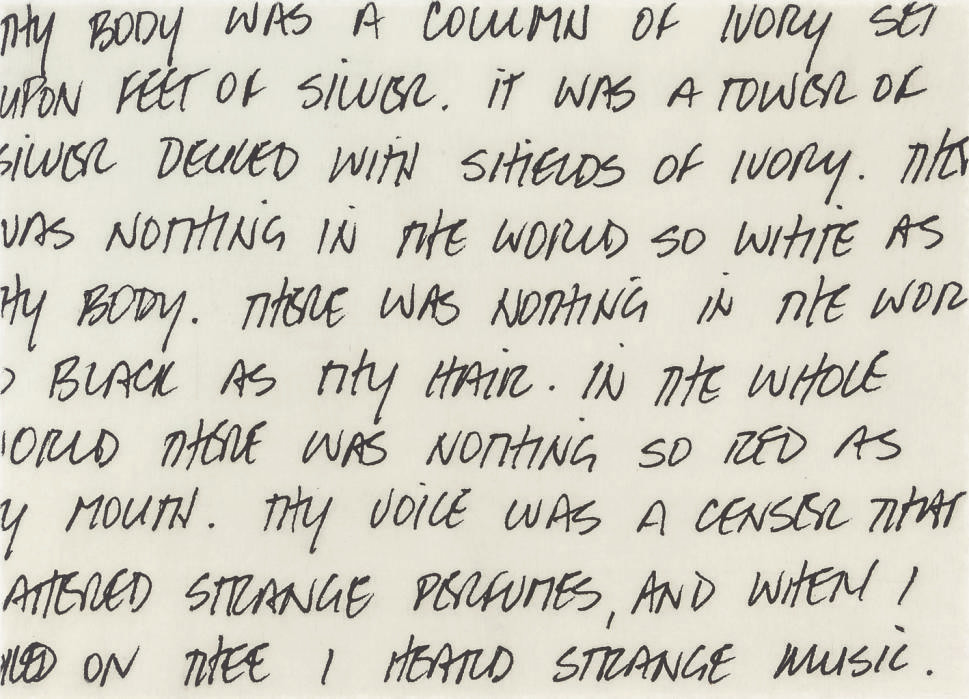 THY BODY WAS A COLUMN OF IVORY SET
UPON FEET OF SILVER. IT WAS A TOWER OF
SILVER DECKED WITH SHIELDS OF IVORY. THER
WAS NOTHING IN THE WORLD SO WHITE AS
THY BODY. THERE WAS NOTHING IN THE WOR
O BLACK AS THY HAIR. IN THE WHOLE
WORLD THERE WAS NOTHING SO RED AS
Y MOUTH. THY VOICE WAS A CENSER THAT
ATTERED STRANGE PERFUMES, AND WHEN I
ON THEE I HEARD STRANGE MUSIC.